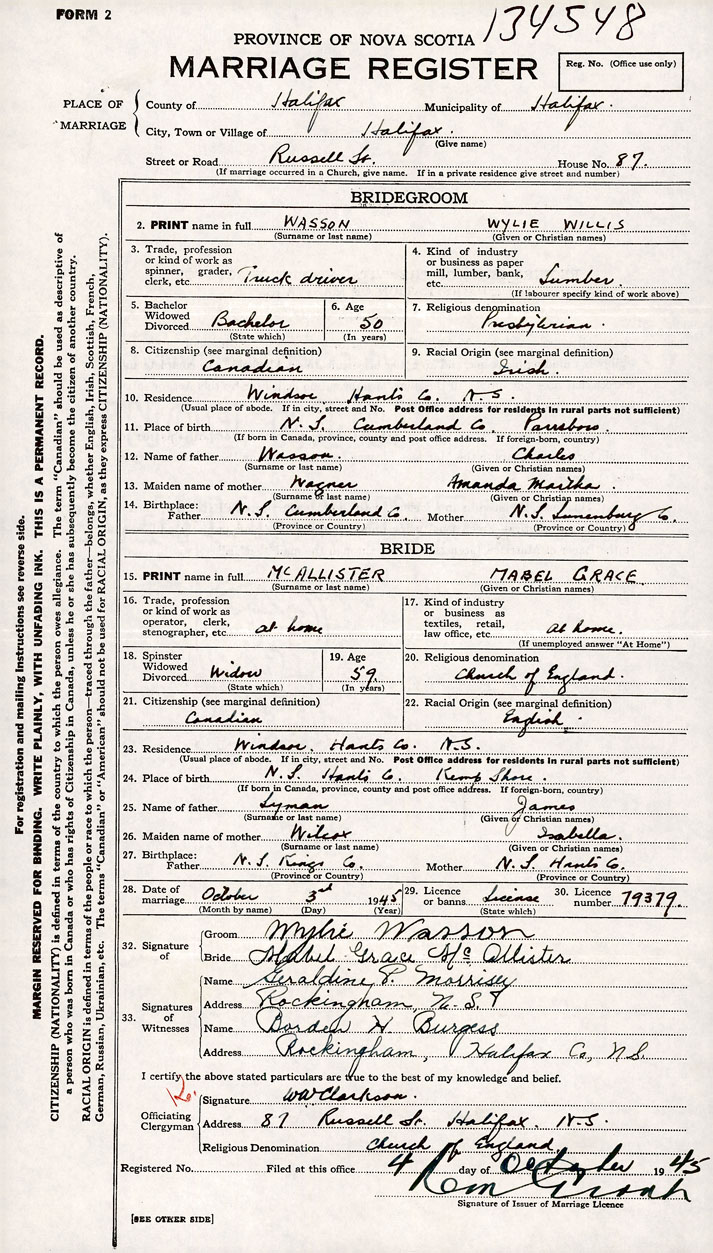 FORM 2
134548
PROVINCE OF NOVA SCOTIA
MARRIAGE REGISTER
Reg. No. (Office use only)
PLACE OF MARRIAGE
County of Halifax Municipality of Halifax.
City, Town or Village of Halifax.
(Give name)
Street or Road Russell St. House No. 87.
(If marriage occurred in a Church, give name. If in a private residence give street and number)
BRIDEGROOM
2. PRINT name in full WASSON WYLIE WILLIS
(Surname or last name) (Given or Christian names)
3. Trade, profession or kind of work as spinner, grader, clerk, etc. Truck driver
4. Kind of industry or business as paper mill, lumber, bank, etc. Lumber.
(If labourer specify kind of work above)
5. Bachelor Widowed Divorced Bachelor
(State which)
6. Age 50
(In years)
7. Religious denomination
Presbyterian.
8. Citizenship (see marginal definition)
Canadian
9. Racial Origin (see marginal definition)
Irish.
10. Residence Windsor, Hants Co. N.S.
(Usual place of abode. If in city, street and No. Post Office address for residents in rural parts not sufficient)
11. Place of birth N.S. Cumberland Co. Parrsboro.
(If born in Canada, province, county and post office address. If foreign-born, country)
12. Name of father Wasson. Charles
(Surname or last name) (Given or Christian names)
13. Maiden name of mother Wagner Amanda Martha.
(Surname or last name) (Given or Christian names)
14. Birthplace: Father N.S. Cumberland Co. Mother N.S. Lunenburg Co.
(Province or Country) (Province or Country)
BRIDE
15. PRINT name in full McALLISTER MABEL GRACE
(Surname or last name) (Given or Christian names)
16. Trade, profession or kind of work as operator, clerk, stenographer, etc. at home
17. Kind of industry or business as textiles, retail, law office, etc. At home.
(If unemployed answer "At Home")
18. Spinster Widowed Divorced Widow
(State which)
19. Age 59
(In years)
20. Religious denomination
Church of England.
21. Citizenship (see marginal definition)
Canadian
22. Racial Origin (see marginal definition)
English.
23. Residence Windsor, Hants Co. N.S.
(Usual place of abode. If in city, street and No. Post Office address for residents in rural parts not sufficient)
24. Place of birth N.S. Hants Co. Kemp Shore.
(If born in Canada, province, county and post office address. If foreign-born, country)
25. Name of father Lyman James
(Surname or last name) (Given or Christian names)
26. Maiden name of mother Wilcox Isabella.
(Surname or last name) (Given or Christian names)
27. Birthplace: Father N.S. Kings Co. Mother N.S. Hants Co.
(Province or Country) (Province or Country)
28. Date of marriage October 3rd 1945
(Month by name) (Day) (Year)
29. Licence or banns License
(State which)
30. Licence number 79379.
32. Signature of
Groom Wylie Wasson
Bride Mabel Grace McAllister
33. Signatures of Witnesses
Name Geraldine P. Morrisey
Address Rockingham, N.S.
Name Borden H Burgess
Address Rockingham, Halifax Co, N.S.
I certify the above stated particulars are true to the best of my knowledge and belief.
Officiating Clergyman
Signature WW Clarkson.
Address 87 Russell St. Halifax. N.S.
Religious Denomination Church of England
Registered No. Filed at this office 4 day of October 1945
Signature of Issuer of Marriage Licence
[SEE OTHER SIDE]
For registration and mailing instructions see reverse side.
MARGIN RESERVED FOR BINDING. WRITE PLAINLY, WITH UNFADING INK. THIS IS A PERMANENT RECORD.
CITIZENSHIP (NATIONALITY) is defined in terms of the country to which the person owes allegiance. The term "Canadian" should be used as descriptive of
a person who was born in Canada or who has rights of Citizenship in Canada, unless he or she has subsequently become the citizen of another country.
RACIAL ORIGIN is defined in terms of the people or race to which the person—traced through the father—belongs, whether English, Irish, Scottish, French,
German, Russian, Ukrainian, etc. The terms "Canadian" or "American" should not be used for RACIAL ORIGIN, as they express CITIZENSHIP (NATIONALITY).